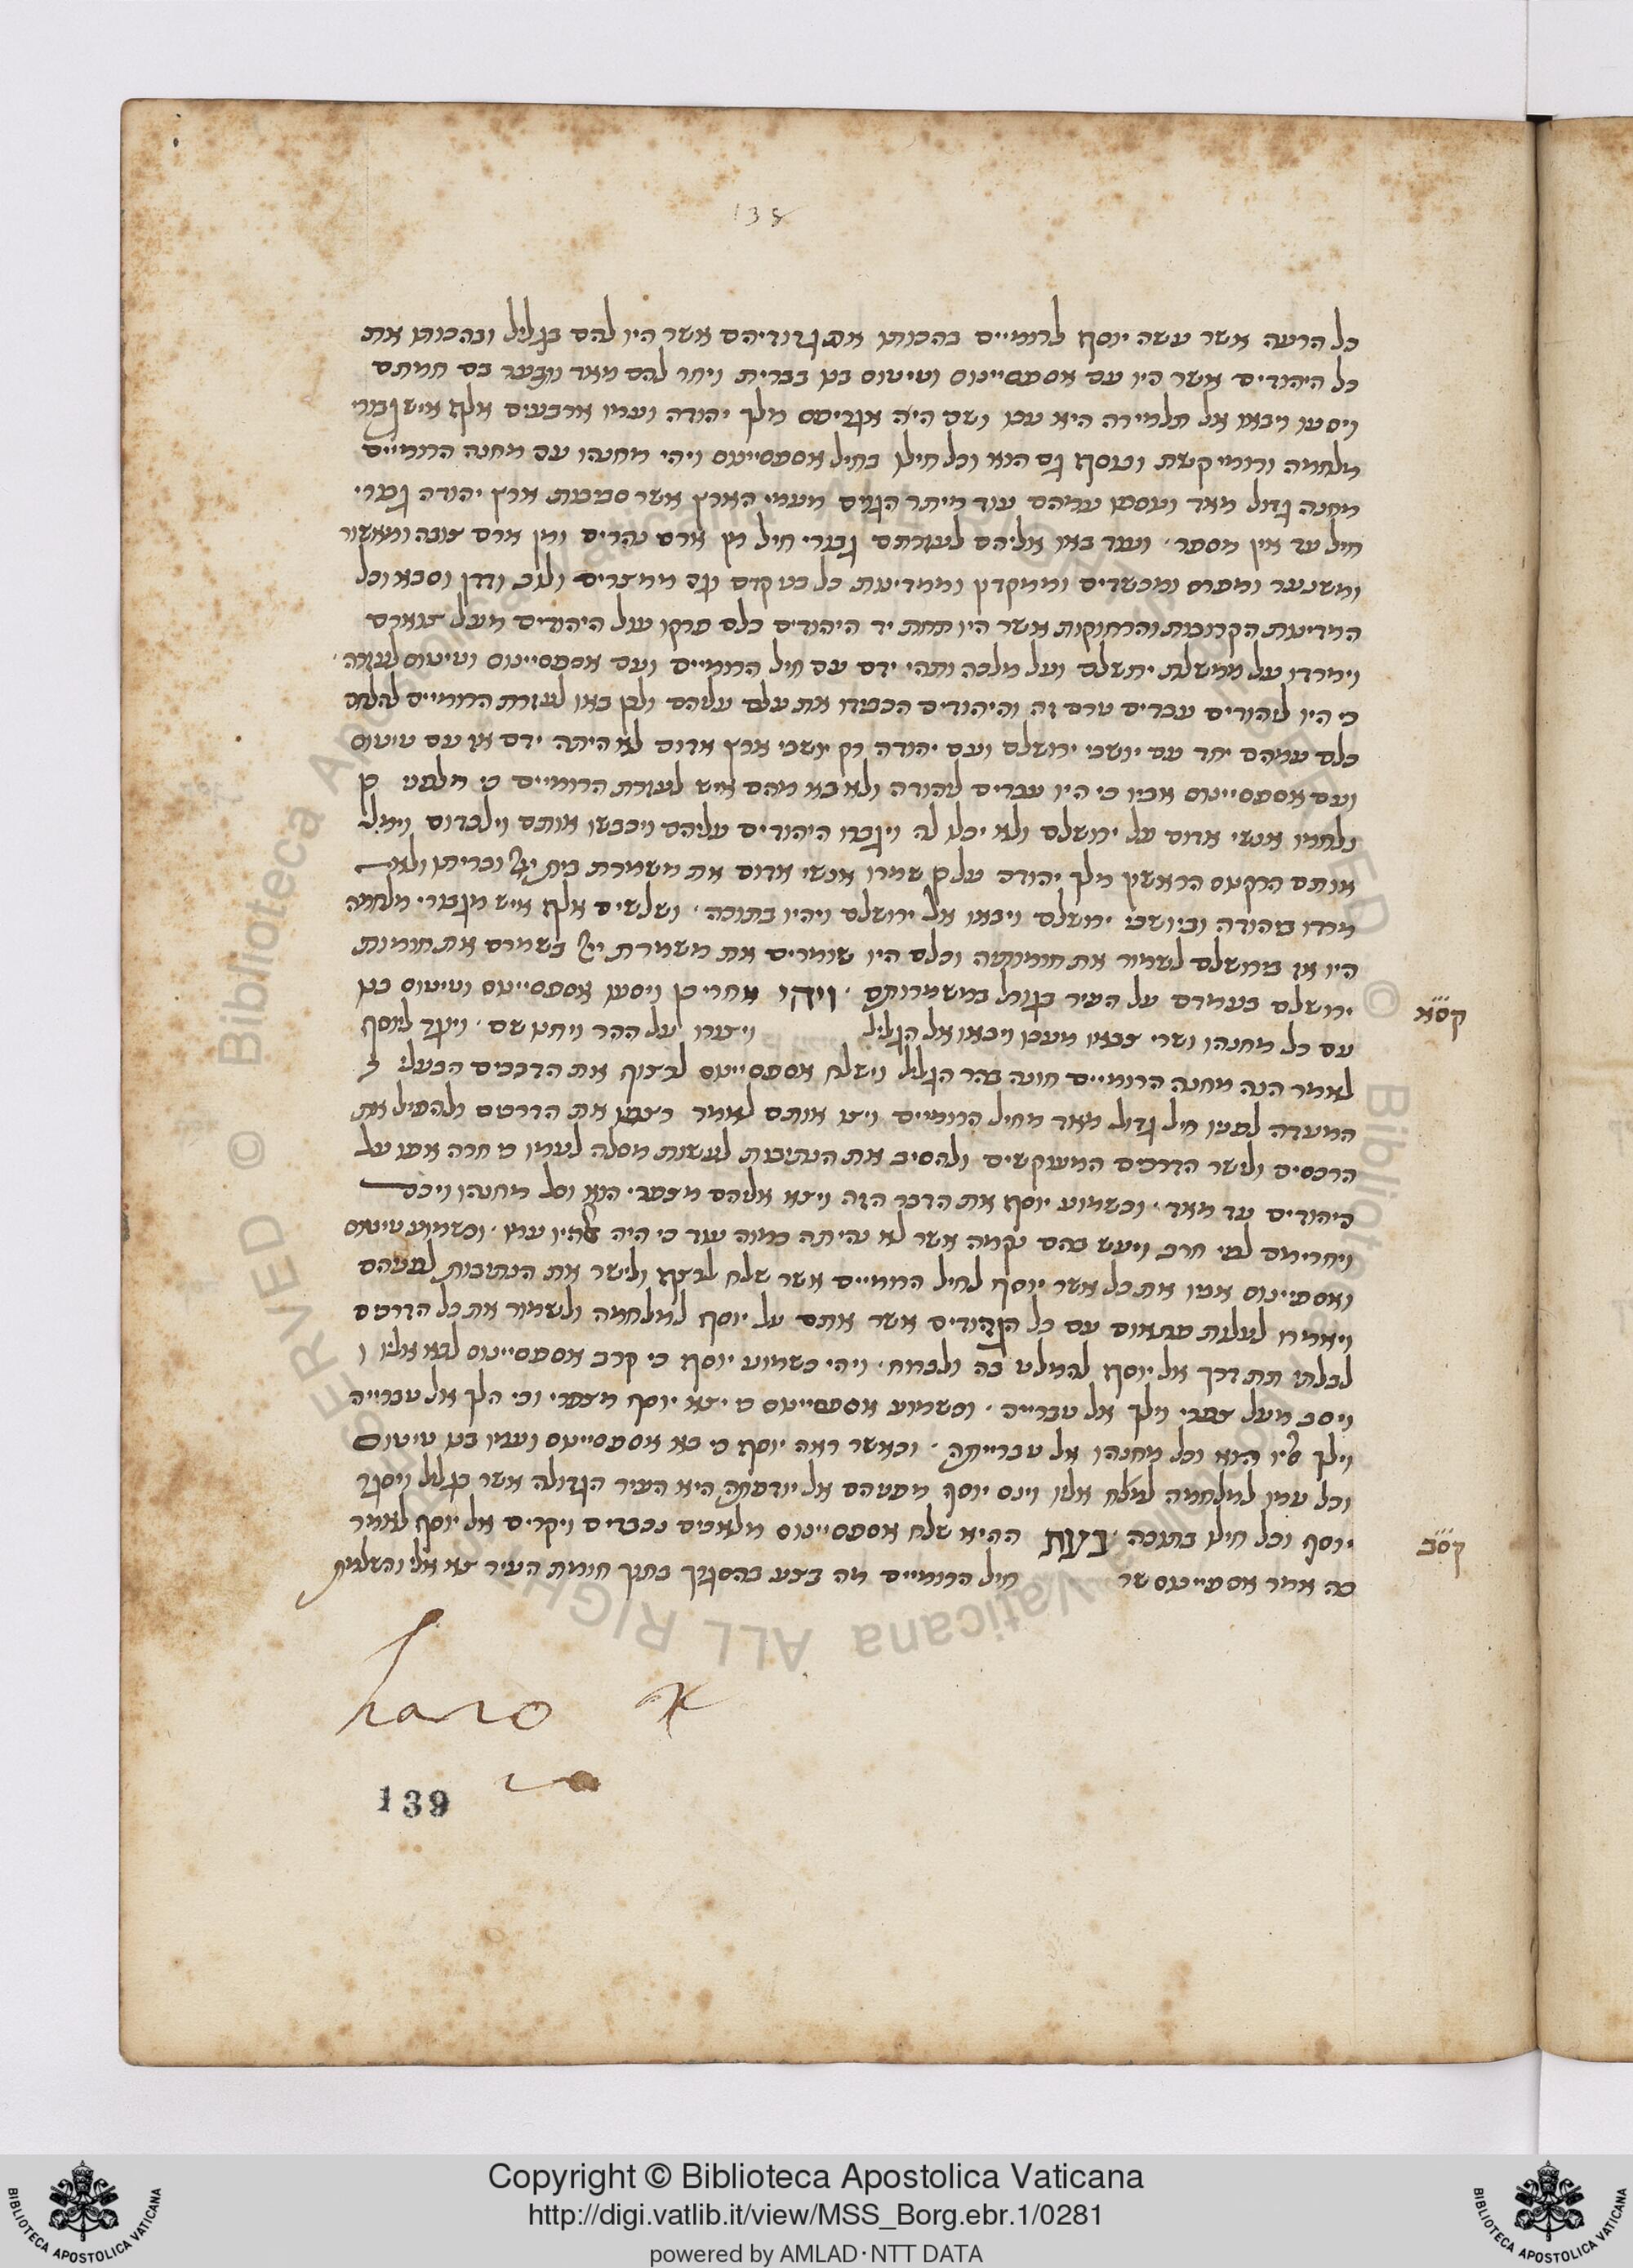 138
כל הרעה אשר עשה יוסף לרומיים בהכותו את גדודיהם אשר היו להם בגליל ובהכותו את
כל היהודים אשר היו עם אספסיינוס וטיטוס בנו בברית ויחר להם מאד ותבער בם חמתם
ויסעו ויבאו אל תלמירה היא עכו ושם היה אגריפס מלך יהודה ועמו ארבעים אלף איש גבורי
מלחמה ורומי קשת ונוסף גם הוא וכל חילו בחיל אספסיינוס ויהי מחנהו עם מחנה הרומיים
מחנה גדול מאד ונוספו עליהם עוד מיתר הגוים מעמי הארץ אשר סביבות ארץ יהודה גבורי
חיל עד אין מספר ׳ ועוד באו אליהם לעזרתם גבורי חיל מן ארם נהרים ומן ארם צובה ומאשור
ומשנער ומפרס ומכשדים וממקדון וממדינות כל בני קדם וגם ממצרים ולוב ודדן וסבא וכל
המדינות הקרובות והרחוקות אשר היו תחת יד היהודים כלם פרקו עול היהודים מעל צוארם
וימרדו על ממשלת ירושלם ועל מלכה ותהי ידם עם חיל הרומיים ועם אספסיינוס וטיטוס לעזרה ׳
כי היו ליהודים עבדים טרם זה והיהודים הכבידו את עלם עליהם ולכן באו לעזרת הרומיים להלחם
כלם עמהם יחד עם יושבי ירושלם ועם יהודה רק יושבי ארץ אדום לא היתה ידם אז עם טיטוס
ועם אספסיינוס אביו כי היו עבדים ליהודה ולא בא מהם איש לעזרת הרומיים כי מלפני כן
נלחמו אנשי אדום על ירושלם ולא יכלו לה ויגברו היהודים עליהם ויכבשו אותם וילכדום וימל
אותם הרקנוס הראשון מלך יהודה על כן שמרו אנשי אדום את משמרת בית ייי ובריתו ולא
מרדו ביהודה וביושבי ירושלם ויבאו אל ירושלם ויהיו בתוכה ׳ ושלשים אלף איש מגבורי מלחמה
היו אז בירושלם לשמור את חומותיה וכלם היו שומרים את משמרת ייי בשמרם את חומות
ירושלם בעמדם על העיר בגורל במשמרותם ׳ ויהי אחרי כן ויסעו אספסיינוס וטיטוס בנו
קסא
עם כל מחנהו ושרי צבאו מעכו ויבאו אל הגליל ויצערו על ההר ויחנו שם ׳ ויוגד ליוסף
לאמר הנה מחנה הרומיים חונה בהר הגליל וישלח אספסיינוס לרצוף את הדרכים הבעלי
המעדה לפניו חיל גדול מאד מחיל הרומיים ויצו אותם לאמר רצפו את הדרכים ולהפיל את
הרכסים ולישר הדרכים המעקשים ולהסיב את הנתיבות לעשות מסלה לעמו כי חרה אפו על
היהודים עד מאד ׳ וכשמוע יוסף את הדבר הזה ויצא אליהם מצפרי הוא וכל מחנהו ויכם
ויחרימם לפי חרב ויעש בהם נקמה אשר לא נהיתה כמוה עוד כי היה אלהיו עמו ׳ וכשמוע טיטוס
ואספסיינוס אביו את כל אשר יוסף לחיל הרומיים אשר שלח לרצף ולישר את הנתיבות לפניהם
ויאמרו לעלות פתאום עם כל הגדודים אשר אתם על יוסף למלחמה ולשמור את כל הדרכים
לבלתי תת דרך אל יוסף להמלט בה ולברוח ׳ ויהי כשמוע יוסף כי קרב אספסיינוס לבא אליו
ויסב מעל צפרי וילך אל טברייה ׳ וכשמוע אספסיינוס כי יצא יוסף מצפרי וכי הלך אל טברייה
וילך הוא וכל מחנהו אל טברייתה ׳ וכאשר ראה יוסף כי בא אספסיינוס ועמו בנו טיטוס
וכל עמו למלחמה אליו וינס יוסף מפניהם אל יודפתה היא העיר הגדולה אשר בגליל ויסגר
יוסף וכל חילו בתוכה ׳ בעת ההיא שלח אספסיינוס מלאכים נכבדים ויקרים אל יוסף לאמר
קסב
כה אמר אספסיינוס שר חיל הרומיים מה בצע בהסגרך בתוך חומת העיר צא אלי והשלמת
139